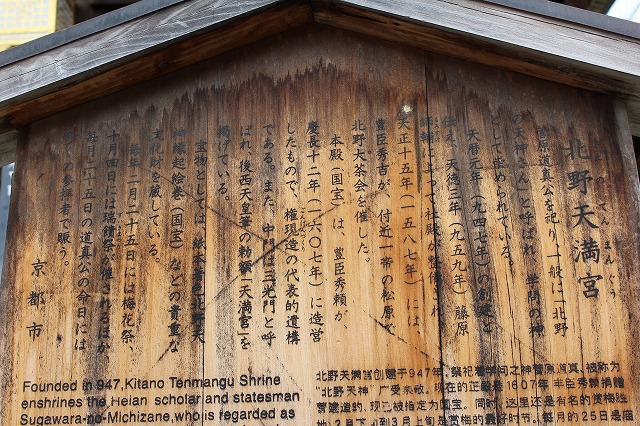 北野天満宮
きたのてんまんぐう
菅原道真公を祀り、一般に「北野
の天神さん」と呼ばれ、学問の神
として崇められている。
天暦元年(九四七年)の創建と
伝え、天徳三年(九五九年)藤原
師輔によって社殿が整備され
天正十五年(一五八七年)には
豊臣秀吉が、付近一帯の松原で
北野大茶会を催した。
本殿(国宝)は、豊臣秀頼が、
慶長十二年(一六〇七年)に造営
したもので、権現造の代表的遺構
である。また、中門は三光門と呼
ばれ、後西天皇筆の勅額「天満宮」を
掲げている。
宝物としては、紙本著色北野天
神縁起絵巻(国宝)などの貴重な
文化財を蔵している。
毎年二月二十五日には梅花祭、
十月四日には瑞饋祭が催されるほか
毎月二十五日の道真公の命日には
多くの参詣者で賑う。
京都市
Founded in 947, Kitano Tenmangu Shrine
enshrines the Heian scholar and statesman
Sugawara-no-Michizane, who is regarded as
北野天满宫创建于947年，祭祀着学问之神菅原道真，被称为
"北野天神"广受亲敬。现在的正殿是1607年丰臣秀赖捐赠
营建造的，现已被指定为国宝。同时，这里还是有
2月下旬到3月上旬是赏梅的最好时节。每月的25日是